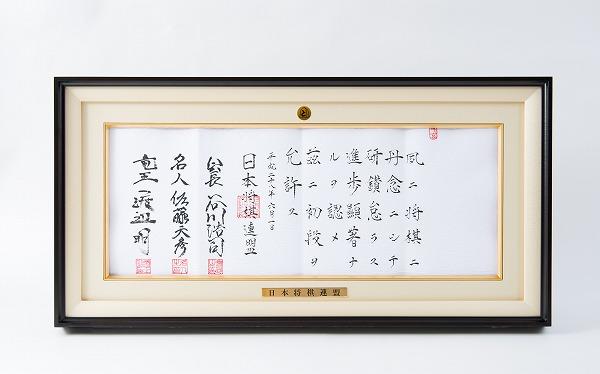 夙ニ将棋ニ
丹念ニシテ
研鑽怠ラス
進歩顕著ナ
ルヲ認メ
茲ニ初段ヲ
允許ス
平成二十八年六月一日
日本将棋連盟
会長 谷川浩司
名人 佐藤天彦
竜王 渡辺明
日本将棋連盟